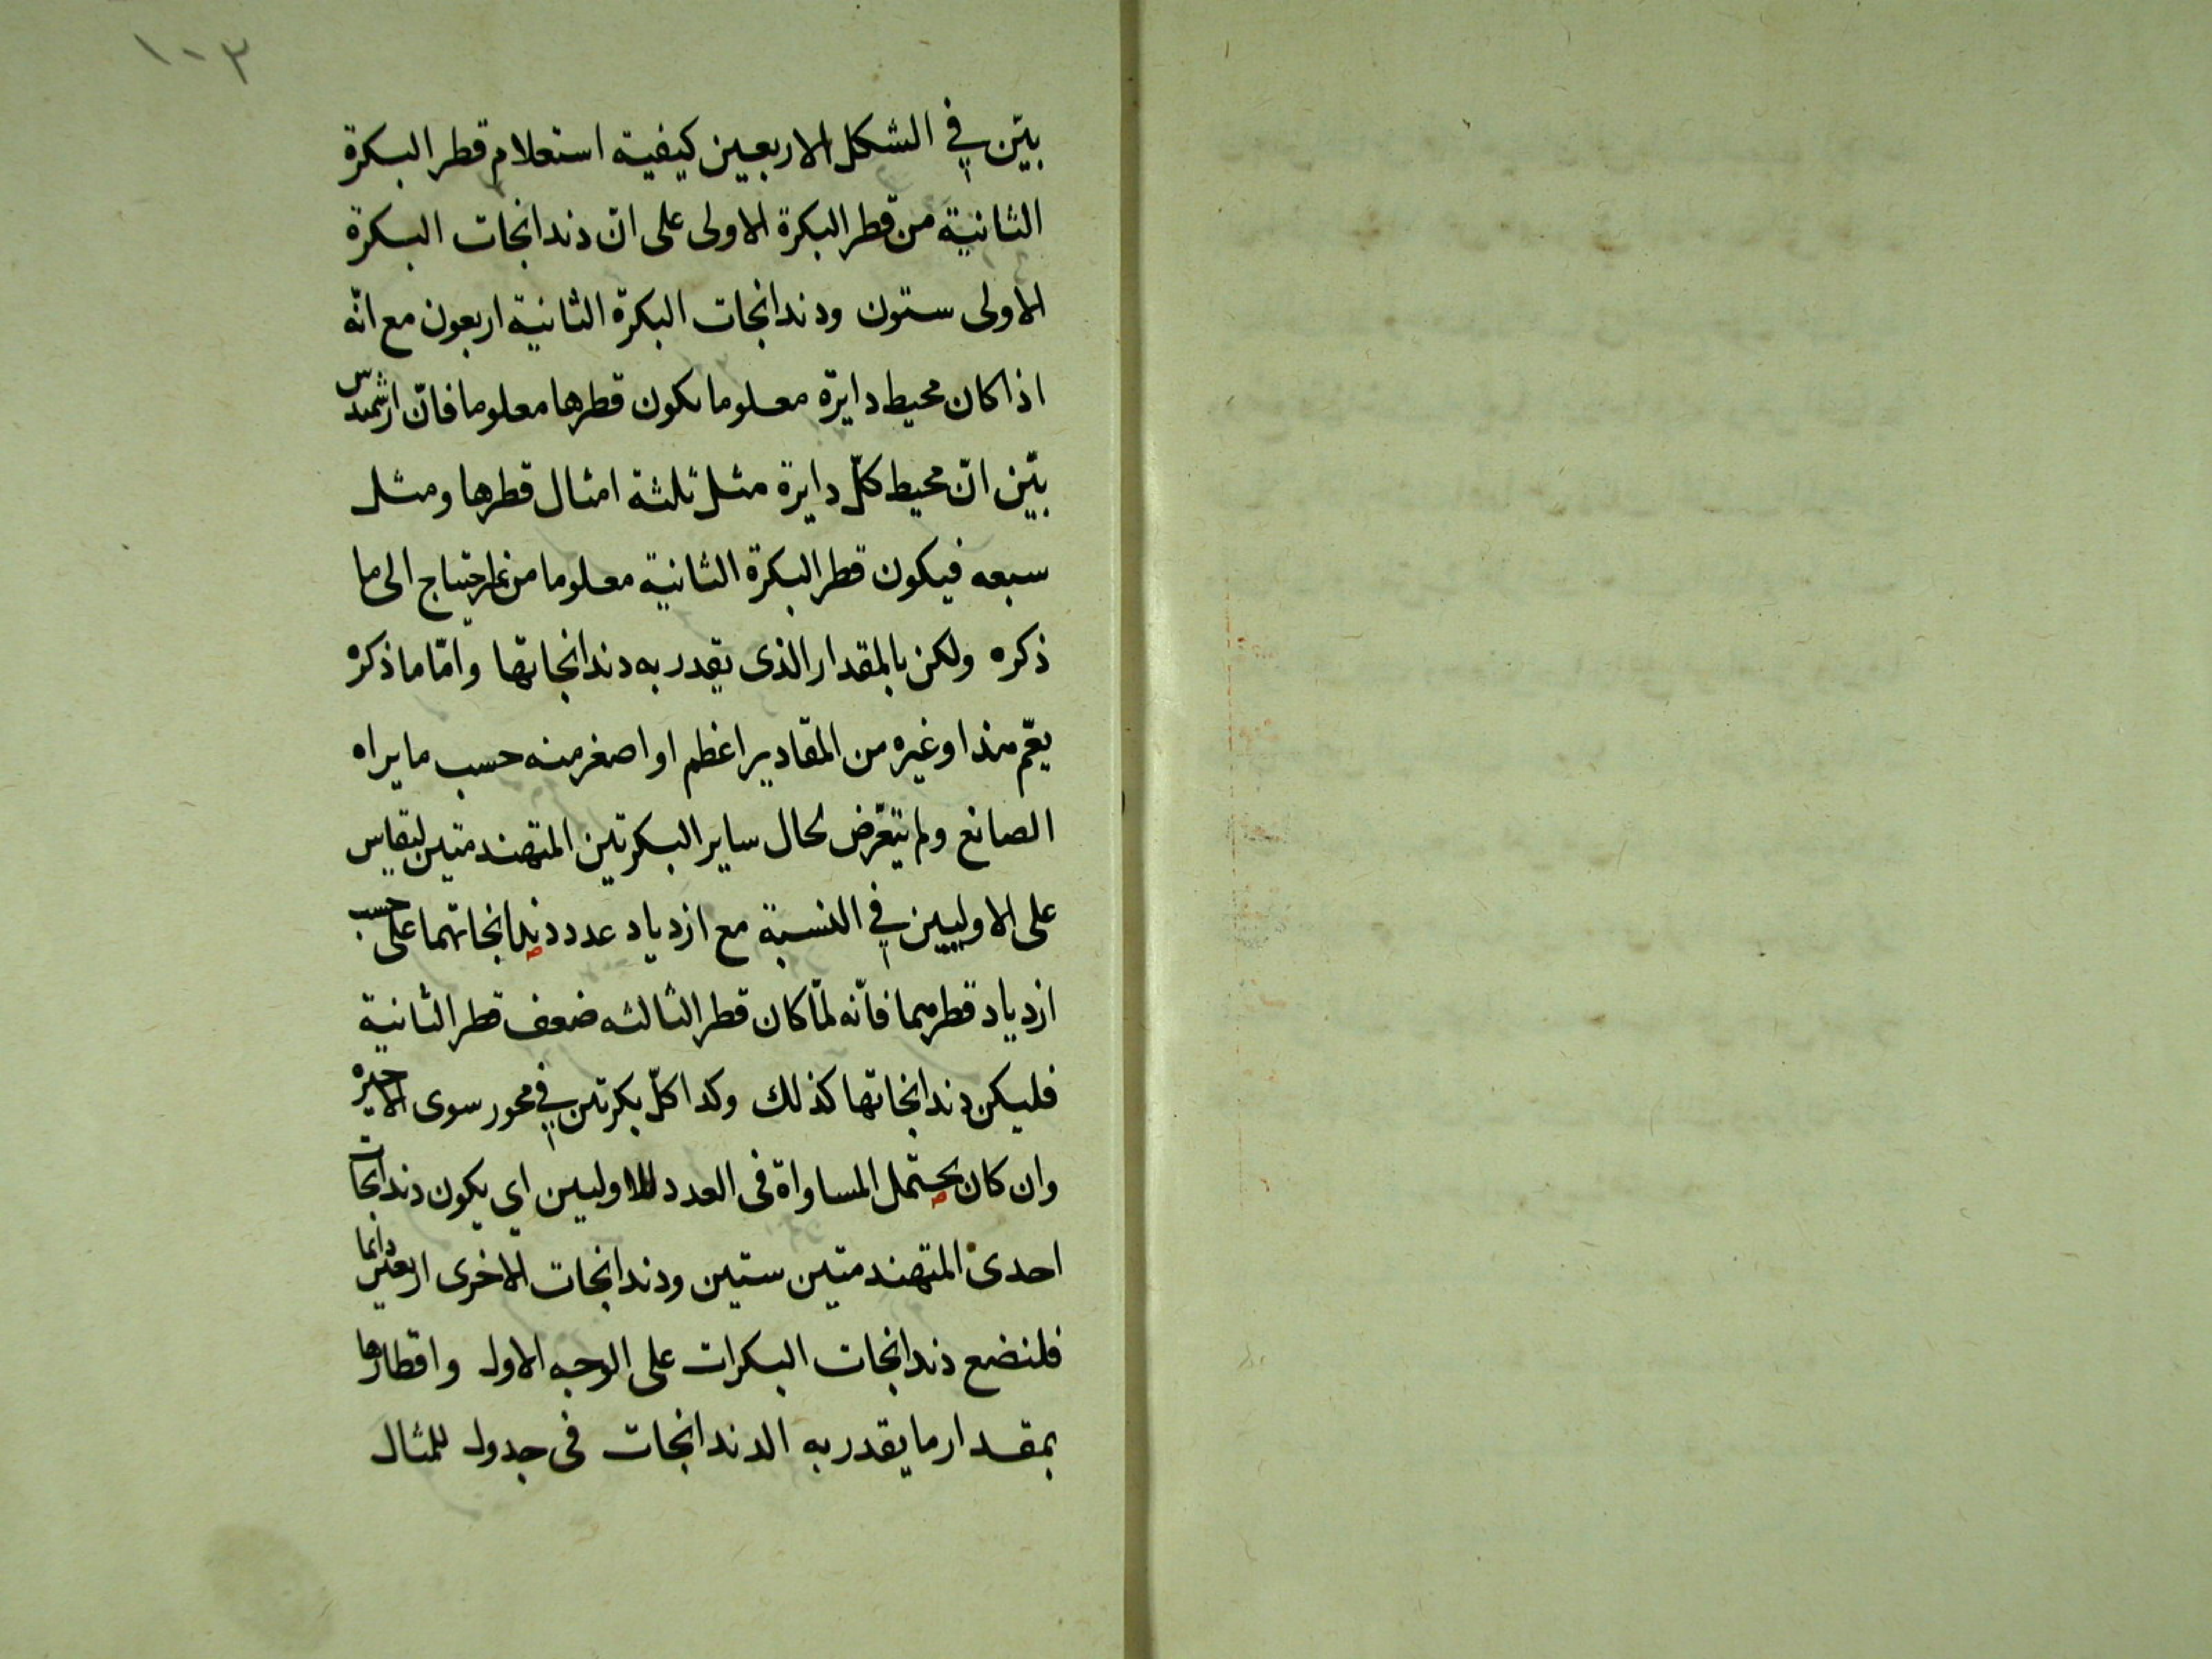 ١٠٣
بيّن في الشكل الاربعين كيفية استعلام قطر البكرة
الثانية من قطر البكرة الاولى على انّ دندانجات البكرة
الاولى ستون ودندانجات البكرة الثانية اربعون مع انّه
اذا كان محيط دايرة معلوما يكون قطرها معلوما فانّ ارشميدس
بيّن انّ محيط كلّ دايرة مثل ثلثة امثال قطرها ومثل
سبعه فيكون قطر البكرة الثانية معلوما من غير احتياج الى ما
ذكره ولكن بالمقدار الذى يقدر به دندانجاتها وامّا ما ذكره
يعّم هذا وغيره من المقادير اعظم او اصغر منه حسب ما يراه
الصانع ولم يتعّرض لحال ساير البكرتين المتهندمتين ليقاس
على الاوليين في النسبة مع ازدياد عدد دندانجاتهما على حسب
ازدياد قطرهما فانّه لمّا كان قطر الثالثه ضعف قطر الثانية
فليكن دندانجاتها كذلك وكذا كلّ بكرتين في محور سوى الاخيره
وان كان يحتمل المساواة فى العدد للاوليين اي يكون دندانجات
احدى المتهندمتين ستين ودندانجات الاخرى اربعين دايما
فلنضع دندانجات البكرات على الوجه الاول واقطارها
بمقدار ما يقدر به الدندانجات فى جدول للمثال